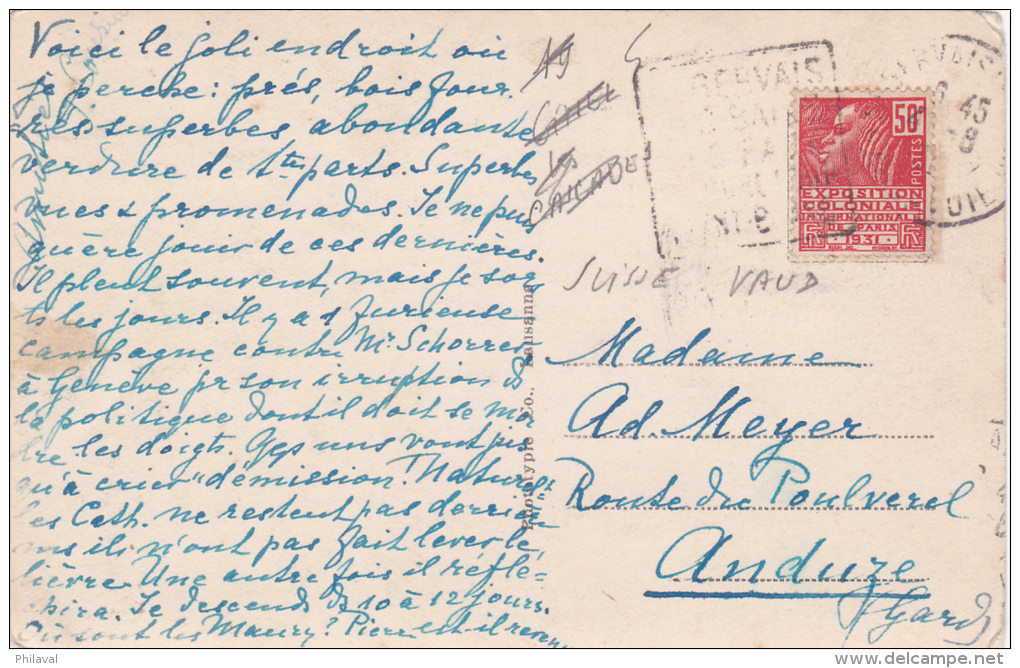 Voici le joli endroit où
je perche: prés, bois four.
rés superbes abondante
verdure de ttes parts. Superbes
vues & promenades. Je ne puis
guère jouir de ces dernières.
Il pleut souvent, mais je sors
ts les jours. Il y a 1 furieuse
campagne contre Mr. Schorrer
à Genève pr son irruption ds
la politique dont il doit se mor
dre les doigts. Qqs uns vont jus
qu'à crier "démission." Naturelt
les Cath. ne restent pas derrière
ms ils n'ont pas fait lever le
lièvre. Une autre fois il réflé-
chira. Je descends ds 10 à 12 jours.
Où sont les Maury? Pierre est-il revenu
Phototypie Co., Lausanne
19
CAICADE
GERVAIS
GERVAIS
45
50c
POSTES
EXPOSITION
COLONIALE
INTERNATIONALE
DE PARIS
1931
SUISSE VAUD
Madame
Ad. Meyer
Route du Poulverel
Anduze
(Gard)
Philaval
delcampe.net